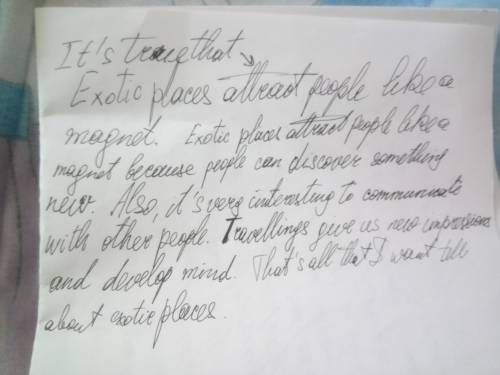 It's true that
Exotic places attract people like a
magnet. Exotic places attract people like a
magnet because people can discover something
new. Also, it's very interesting to communicate
with other people. Travellings give us new impressions
and develop mind. That's all that I want tell
about exotic places.